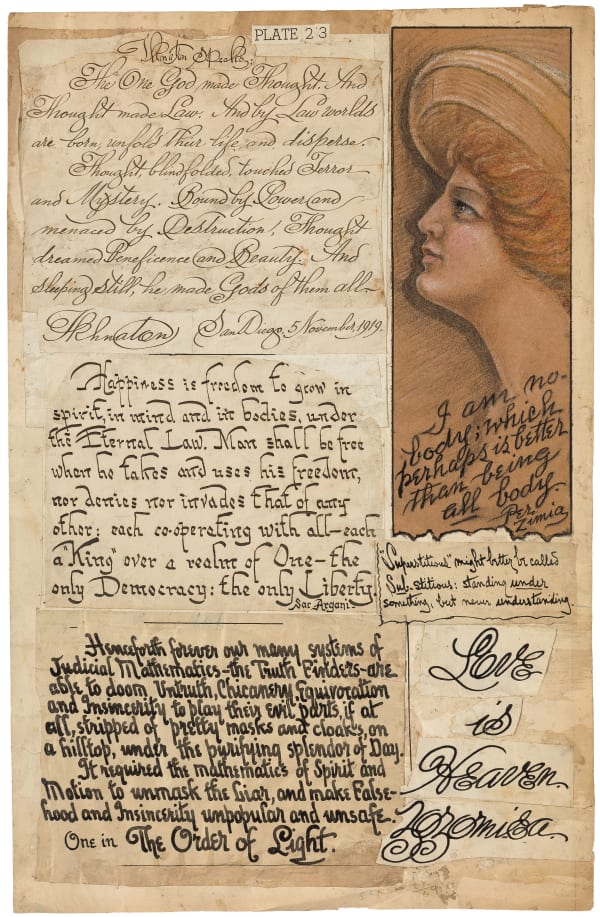 PLATE 23
Akhnaton Speaks:
The One God made Thought. And
Thought made Law. And by Law worlds
are born, unfold their life, and disperse.
Thought, blindfolded, touched Terror
and Mystery. Bound by Power and
menaced by Destruction, Thought
dreamed Beneficence and Beauty. And
sleeping still, he made Gods of them all—
Akhnaton San Diego, 5 November, 1919.
I am no-
body; which
perhaps is better
than being
all body.
Per Zimia
Happiness is freedom to grow in
spirit, in mind and in bodies, under
the Eternal Law. Man shall be free
when he takes and uses his freedom,
nor denies nor invades that of any
other: each co-operating with all—each
a "King" over a realm of One—the
only Democracy: the only Liberty.
Sar Argani
"Superstitious" might better be called
Sub-stitious: standing under
something, but never understanding.
Henceforth forever our many systems of
Judicial Mathematics—the Truth Finders—are
able to doom Untruth, Chicanery, Equivocation
and Insincerity to play their evil parts, if at
all, stripped of pretty masks and cloaks, on
a hilltop, under the purifying splendor of Day.
It required the mathematics of Spirit and
Motion to unmask the Liar, and make False-
hood and Insincerity unpopular and unsafe.
One in The Order of Light.
Love
is
Heaven.